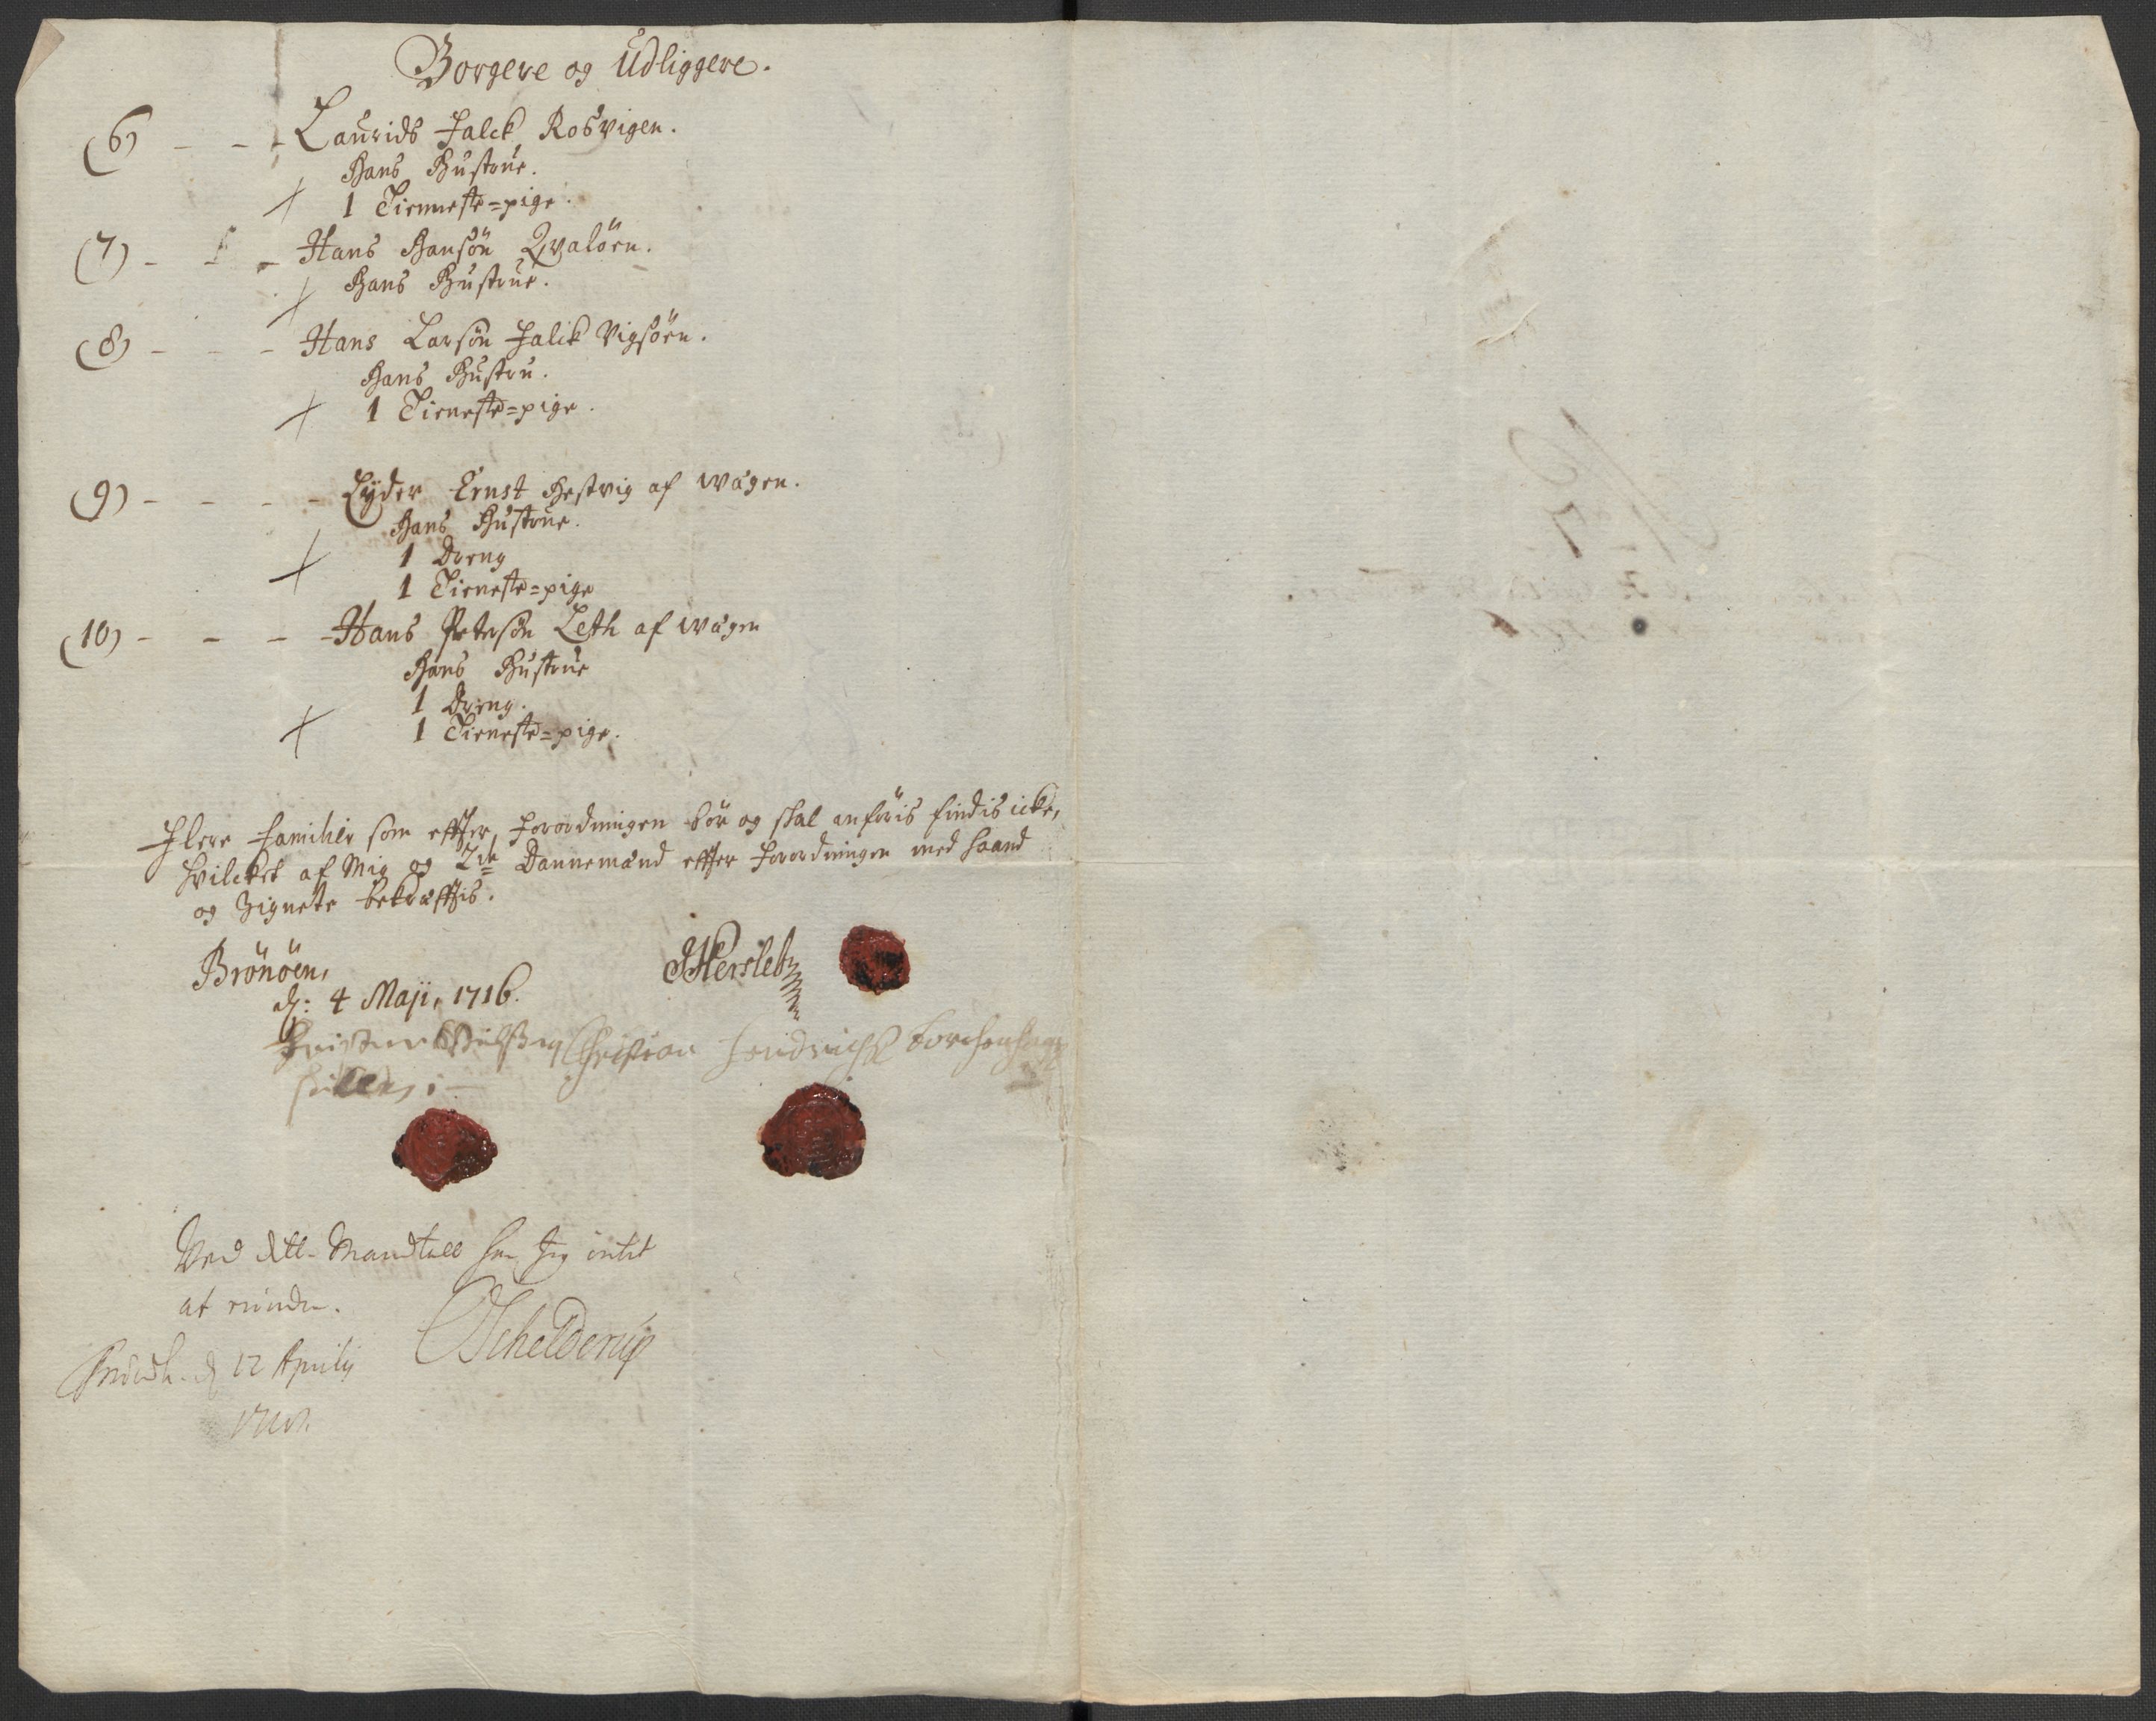 Borgere og Udliggere.
(6) - - - Laurids Falck Rosvigen.
Hans Hustrue.
+ 1 Tienneste=pige.
(7) - - - Hans Hansön Qvalöen.
+ Hans Hustrue.
(8) - - - Hans Larsön Falck Vigsöen.
Hans Hustru.
+ 1 Tieneste=pige.
(9) - - - - Lÿder Ernst Hestvig af Wågen.
Hans Hustrue.
+ 1 Dreng
1 Tieneste=pige
(10) - - - - Hans Petersön Leth af Wågen
Hans Hustrue
1 Dreng.
+ 1 Tieneste=pige.
Flere Familier som effter Forordningen bör og skal anföris findis icke,
hvilcket af Mig og 2de Dannemænd effter Forordningen med haand
og Zignete bekræfftis.
Brönöen,
d: 4 Maji, 1716.
JHersleb
Christian
Ved dette Mandtall har Jeg intet
at erindre.
Schelderup
d 12 Aprilij